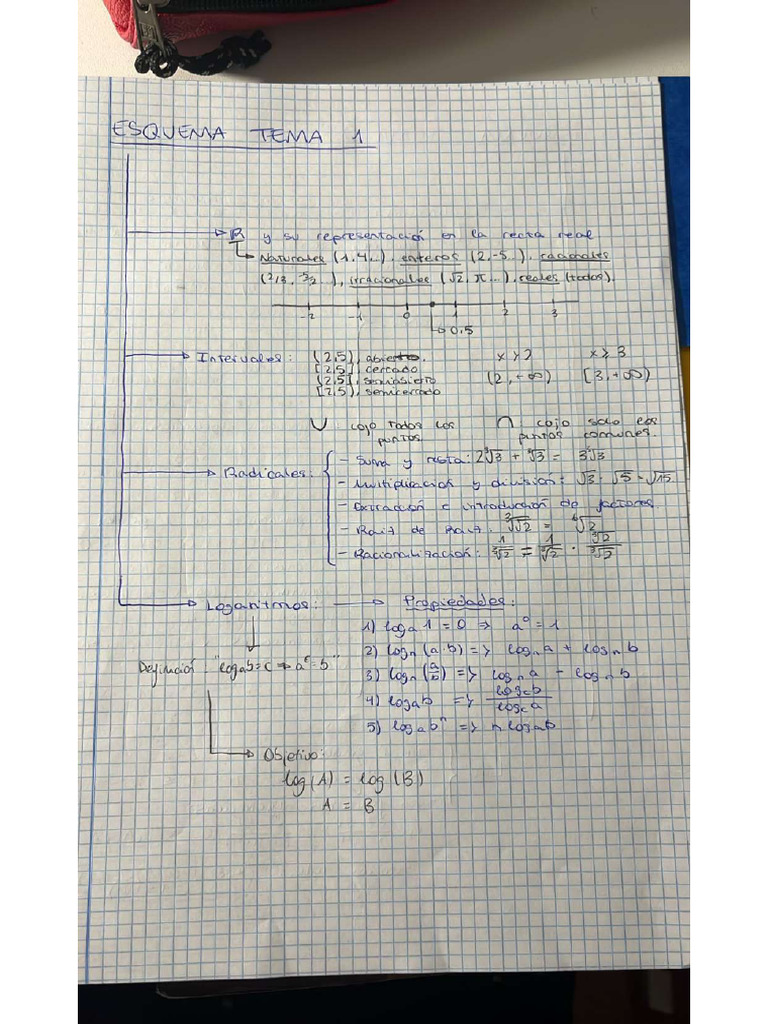 ESQUEMA TEMA 1
R y su representación en la recta real
Naturales (1,4...), enteros (2,-5...), racionales
(2/3, -5/2...), irracionales (√2, π...), reales (todos).
-2 -1 0 1 2 3
0,5
Intervalos: (2,5), abierto. x>2 x≥3
[2,5], cerrado (2,+∞) [3,+∞)
(2,5], semiabierto
[2,5), semicerrado
∪ cojo todos los puntos ∩ cojo solo los puntos comunes.
Radicales: - Suma y resta:
- Multiplicación y división: √3 · √5 = √15
- Extracción e introducción de factores.
- Raíz de Raíz: ∛√2 = ⁶√2
- Racionalización:
Logaritmos: → Propiedades:
1) logₐ1=0 ⇒ a⁰=1
2) logₙ(a·b) => logₙa + logₙb
3) logₙ(a/b) => logₙa - logₙb
Definición "logₐb=c → aᶜ=b"
4) logₐb => log_c b / log_c a
5) logₐbⁿ => n logₐb
Objetivo:
log(A) = log(B)
A = B